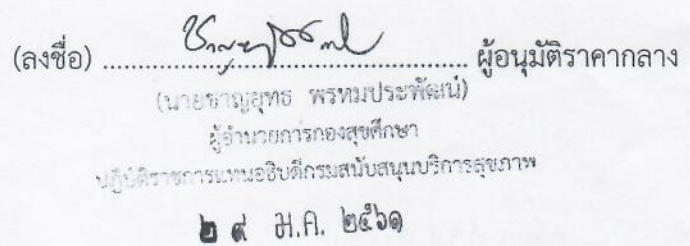 (ลงชื่อ) ............................................ ผู้อนุมัติราคากลาง
(นายชาญยุทธ พรหมประพัฒน์)
ผู้อำนวยการกองสุขศึกษา
ปฏิบัติราชการแทนอธิบดีกรมสนับสนุนบริการสุขภาพ
๒ ๙ ม.ค. ๒๕๖๑